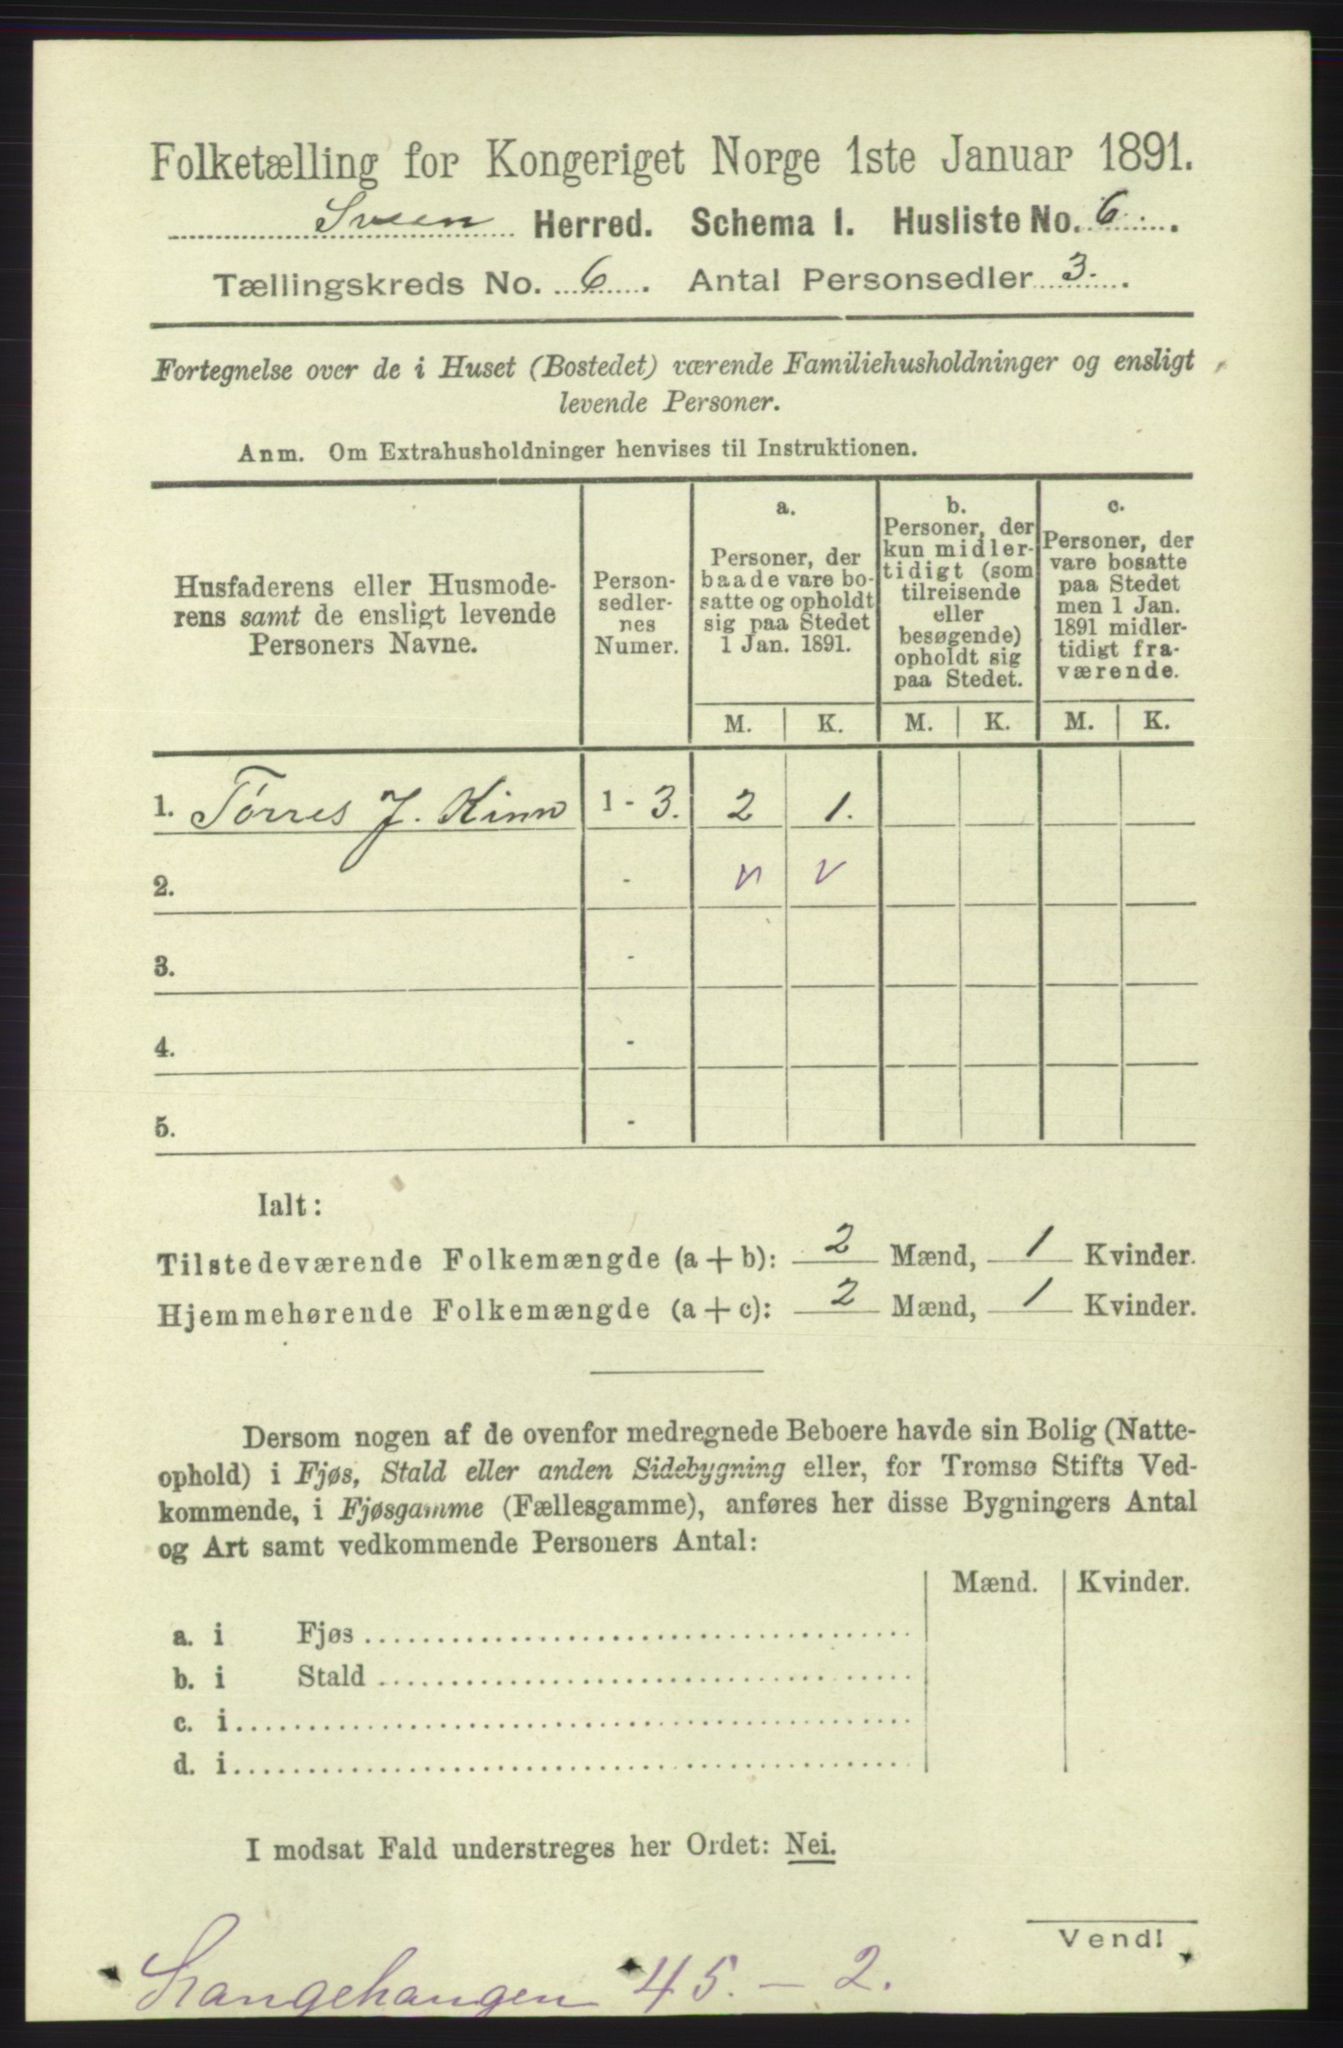 Folketælling for Kongeriget Norge 1ste Januar 1891.
Sveen Herred. Schema 1. Husliste No. 6.
Tællingskreds No. 6. Antal Personsedler 3.
Fortegnelse over de i Huset (Bostedet) værende Familiehusholdninger og ensligt
levende Personer.
Anm. Om Extrahusholdninger henvises til Instruktionen.
Husfaderens eller Husmode-
rens samt de ensligt levende
Personers Navne.
Person-
sedler-
nes
Numer.
a.
Personer, der
baade vare bo-
satte og opholdt
sig paa Stedet
1 Jan. 1891.
b.
Personer, der
kun midler-
tidigt (som
tilreisende
eller
besøgende)
opholdt sig
paa Stedet.
c.
Personer, der
vare bosatte
paa Stedet
men 1 Jan.
1891 midler-
tidigt fra-
værende.
M. K. M. K. M. K.
1. Tørres J. Kinn 1 - 3. 2 1.
2. -
3. -
4. -
5. -
Ialt:
Tilstedeværende Folkemængde (a + b): 2 Mænd, 1 Kvinder.
Hjemmehørende Folkemængde (a + c): 2 Mænd, 1 Kvinder.
Dersom nogen af de ovenfor medregnede Beboere havde sin Bolig (Natte-
ophold) i Fjøs, Stald eller anden Sidebygning eller, for Tromsø Stifts Ved-
kommende, i Fjøsgamme (Fællesgamme), anføres her disse Bygningers Antal
og Art samt vedkommende Personers Antal:
Mænd. Kvinder.
a. i Fjøs
b. i Stald
c. i
d. i
I modsat Fald understreges her Ordet: Nei.
Vend!
Langehaugen 45. - 2.